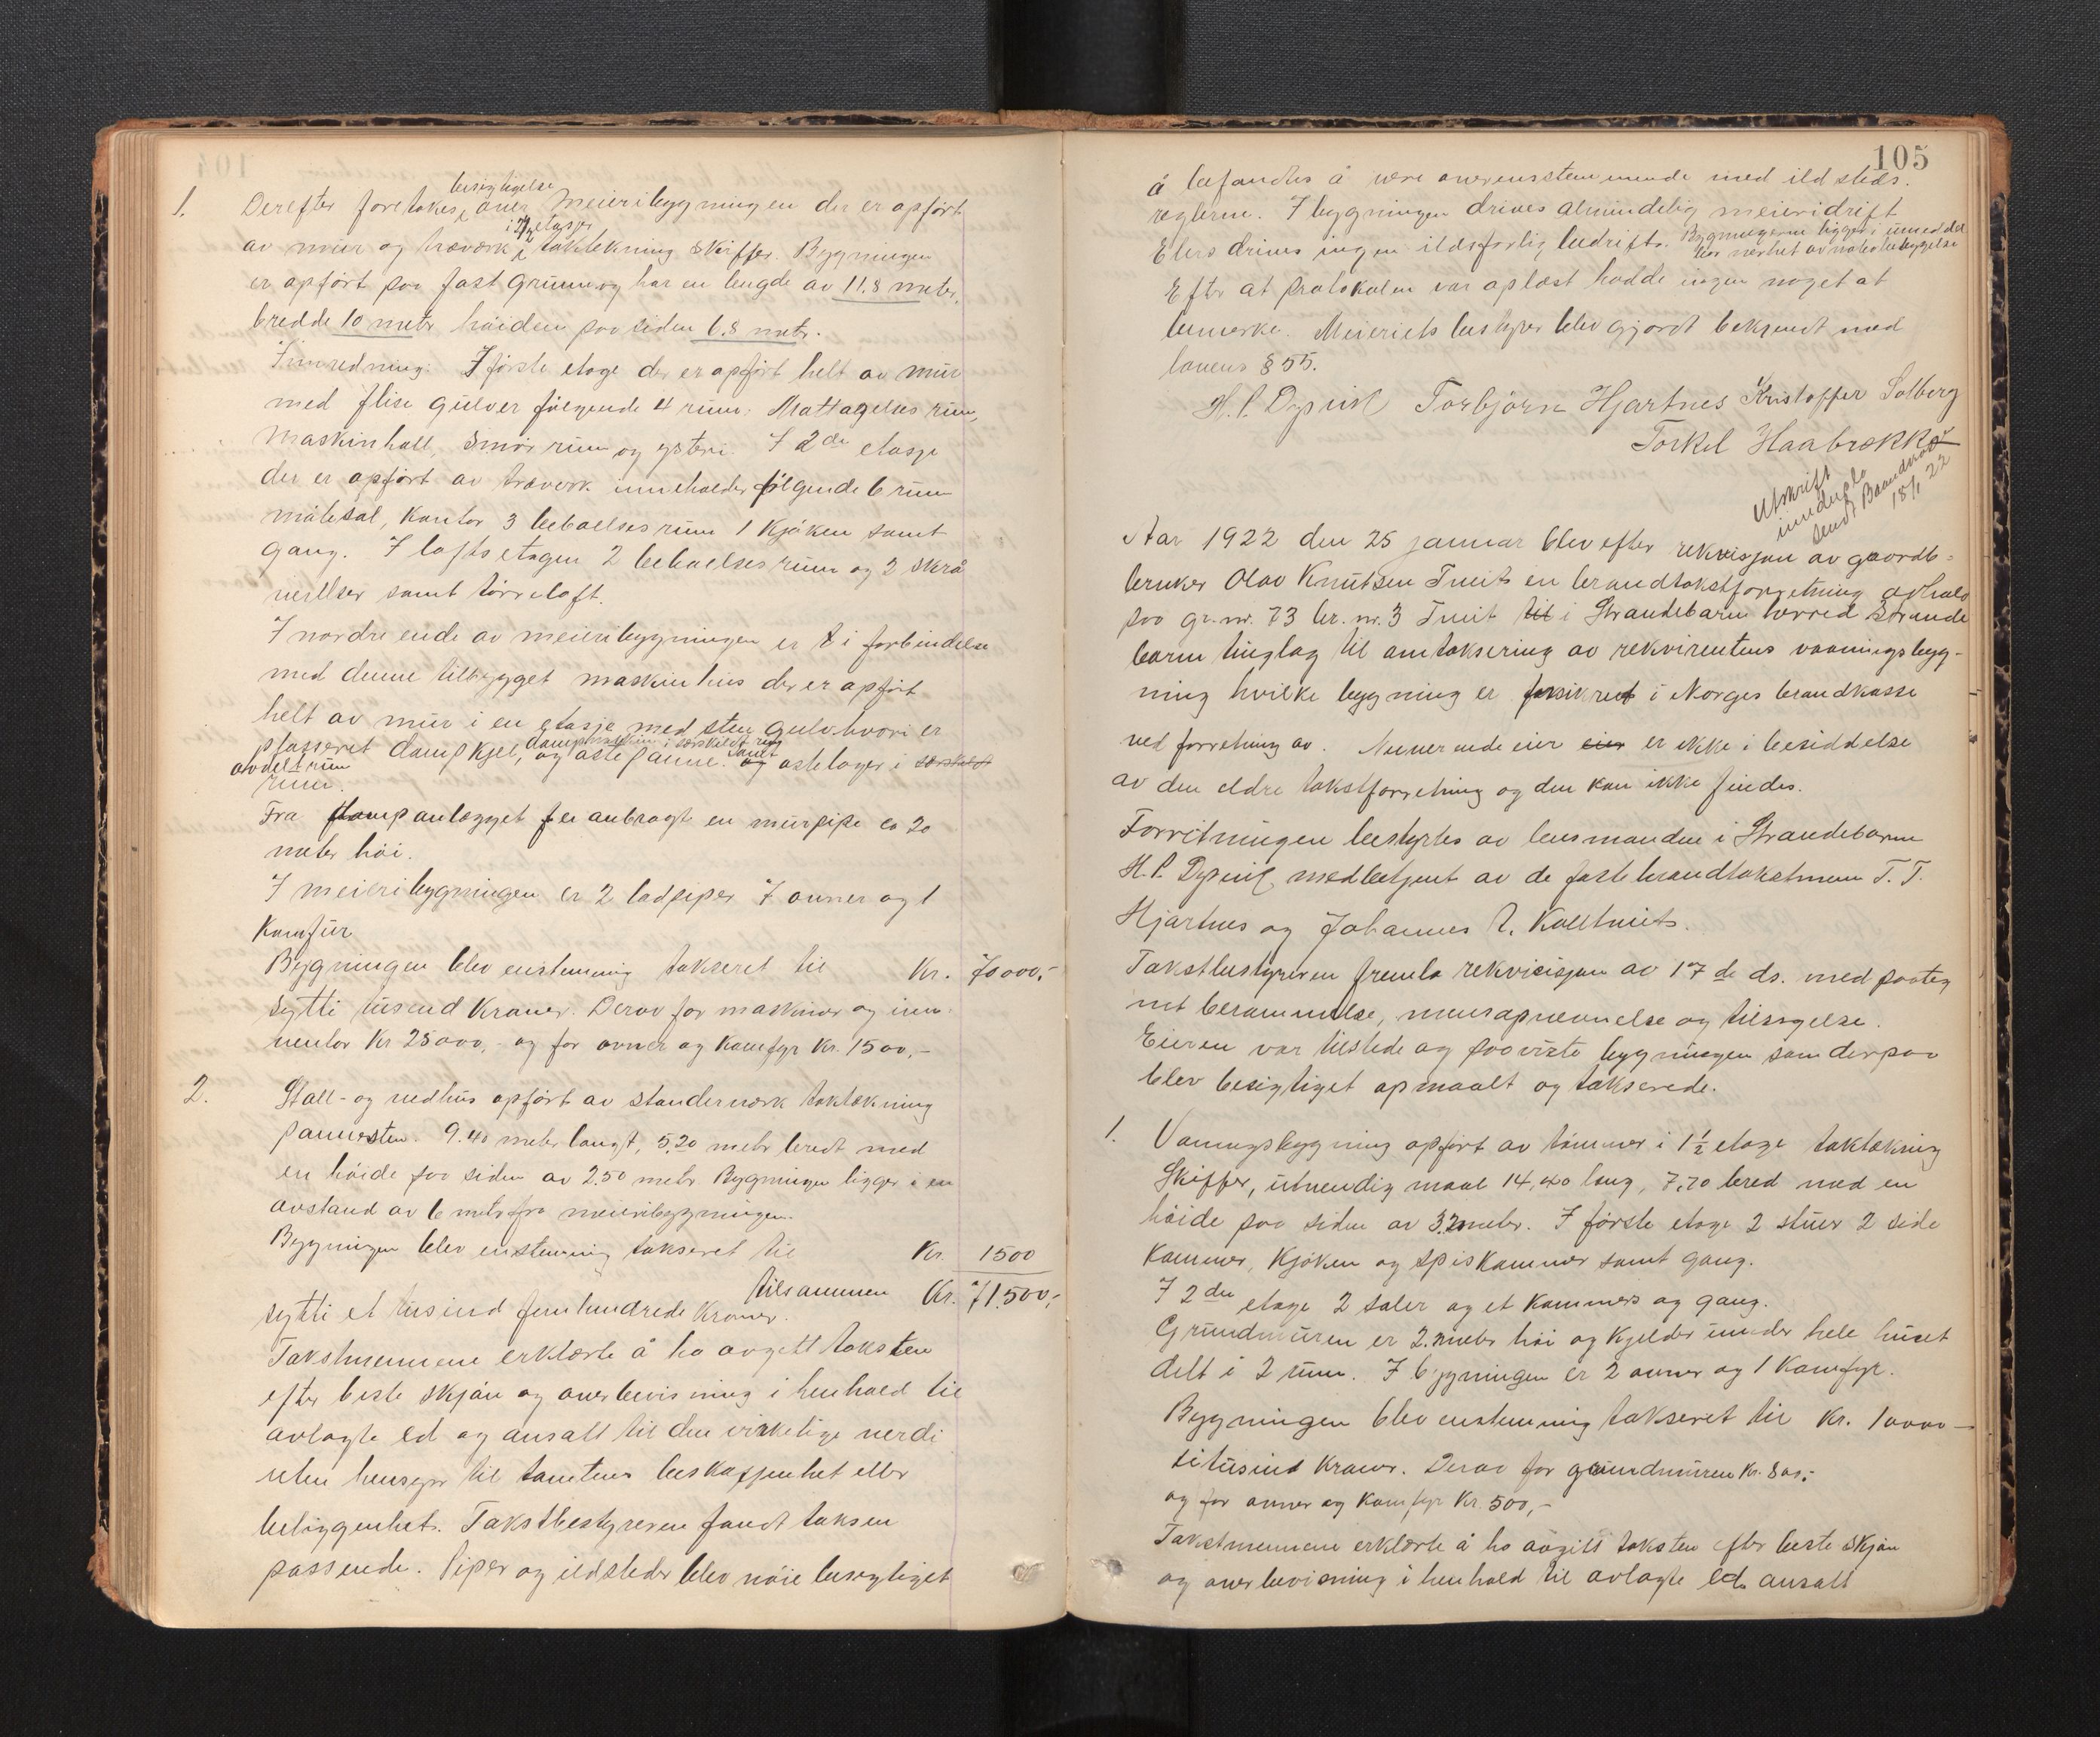 1. Derefter foretokes besigtigelse over Meieribygningen der er opført
av mur og træverk i 2½ etasjer taktekning Skiffer. Bygningen
er opført paa fast grunn og har en lengde av 11.8 meter,
bredde 10 metr høiden paa siden 6.8 metr.
Innredning: I første etage der er opført helt av mur
med flise gulver følgende 4 rum: Mottagelses rum,
maskinhall, smør rum og ysteri. I 2de etasje
der er opført av træverk inneholder følgende 6 rum
møtesal, kontor 3 beboelsesrum 1 kjøken samt
gang. I lofts etagen 2 beboelsesrum og 2 skrå
verelser samt tørreloft.
I nordre ende av meieribygningen er i forbindelse
med denne tilbygget maskinhus der er opført
helt av mur i en etasje med sten gulv hvori er
plasseret dampkjel, dampmaskin i særskildt rum og oste panne. og samt ostelager i særskildt
avdelt rum
rum.
Fra dampanlægget er anbragt en murpipe ca 20
meter høi.
I meieribygningen er 2 ladpiper 7 ovner og 1
Komfür
Bygningen blev enstemmig takseret til Kr. 70000,-
sytti tusend Kroner. Derav for maskiner og inn-
ventar Kr 25000,- og for ovner og komfyr Kr. 1500,-
2. Stall- og vedhus opført av standerverk taktekning
pannesten. 9.40 meter langt, 5.20 metr bredt med
en høide paa siden av 2.50 metr Bygningen ligger i en
avstand av 6 metr fra meieribygningen.
Bygningen blev enstemmig takseret til Kr. 1500
tilsammen Kr. 71.500,-
sytti et tusind femhundrede Kroner.
Takstmennene erklærte å ha avgitt taksten
efter beste skjøn og overbevisning i henhold til
avlagte ed og ansatt til den virkelige verdi
uten hensyn til tomtens beskaffenhet eller
beliggenhet. Takstbestyreren fandt taksen
passende. Piper og ildsteder blev nøie besigtiget
105
å befandtes å være overensstemmende med ildsteds.
reglerne. I bygningen drives almindelig meieridrift
Elers drives ingen ildsfarlig bedrift. Bygningerne ligger i umeddel
bar nærhet av naboebebyggelse
Efter at protokolen var oplæst hadde ingen noget at
bemerke. Meieriets bestyrer blev gjordt bekjendt med
lovens § 55.
H. P. Dysvik Torbjørn Hjartnes Kristoffer Solberg
Torkel Haabrekke
Utskrift
sendt Brandkassen
18/1 22
Aar 1922 den 25 januar blev efter rekvisjon av gaards-
bruker Olav Knutsen Tveit en brandtakstforretning avholdt
paa gr. nr. 73 br. nr. 3 Tveit til i Strandebarm herred Strande
barm tinglag til omtaksering av rekvirentens vaaningsbyg-
ning hvilke bygning er forsikret i Norges brandkasse
ved forretning av. Nuverende eier eier er ikke i besiddelse
av den eldre takstforretning og den kan ikke findes.
Forretningen bestyrtes av lensmanden i Strandebarm
H. P. Dysvik medbetjent av de faste brandtakstmenn T. T.
Hjartnes og Johannes A. Kalltveit.
Takstbestyreren fremla rekvisisjon av 17de ds. med paateg
net berammelse, mensopnevnelse og tilsigelse.
Eieren var tilstede og paaviste bygningen som derpaa
blev besigtiget opmaalt og takserede.
1. Vaaningsbygning opført av tømmer i 1½ etage taktekning
Skiffer, utvendig maal 14,20 lang, 7,70 bred med en
høide paa siden av 3.2 meter. I første etage 2 stuer 2 side
Kammer, Kjøken og spiskammer samt gang.
I 2den etage 2 saler og et kammers og gang.
Grundmuren er 2. meter høi og kjelder under hele huset
delt i 2 rum. I bygningen er 2 ovner og 1 Komfyr.
Bygningen blev enstemmig takseret til Kr. 10000 -
titusind kroner. Derav for grundmuren Kr. 800,-
og for ovner og komfyr Kr. 500,-
Takstmennene erklærte å ha avgitt taksten efter beste skjøn
og overbevisning i henhold til avlagte ed ansatt